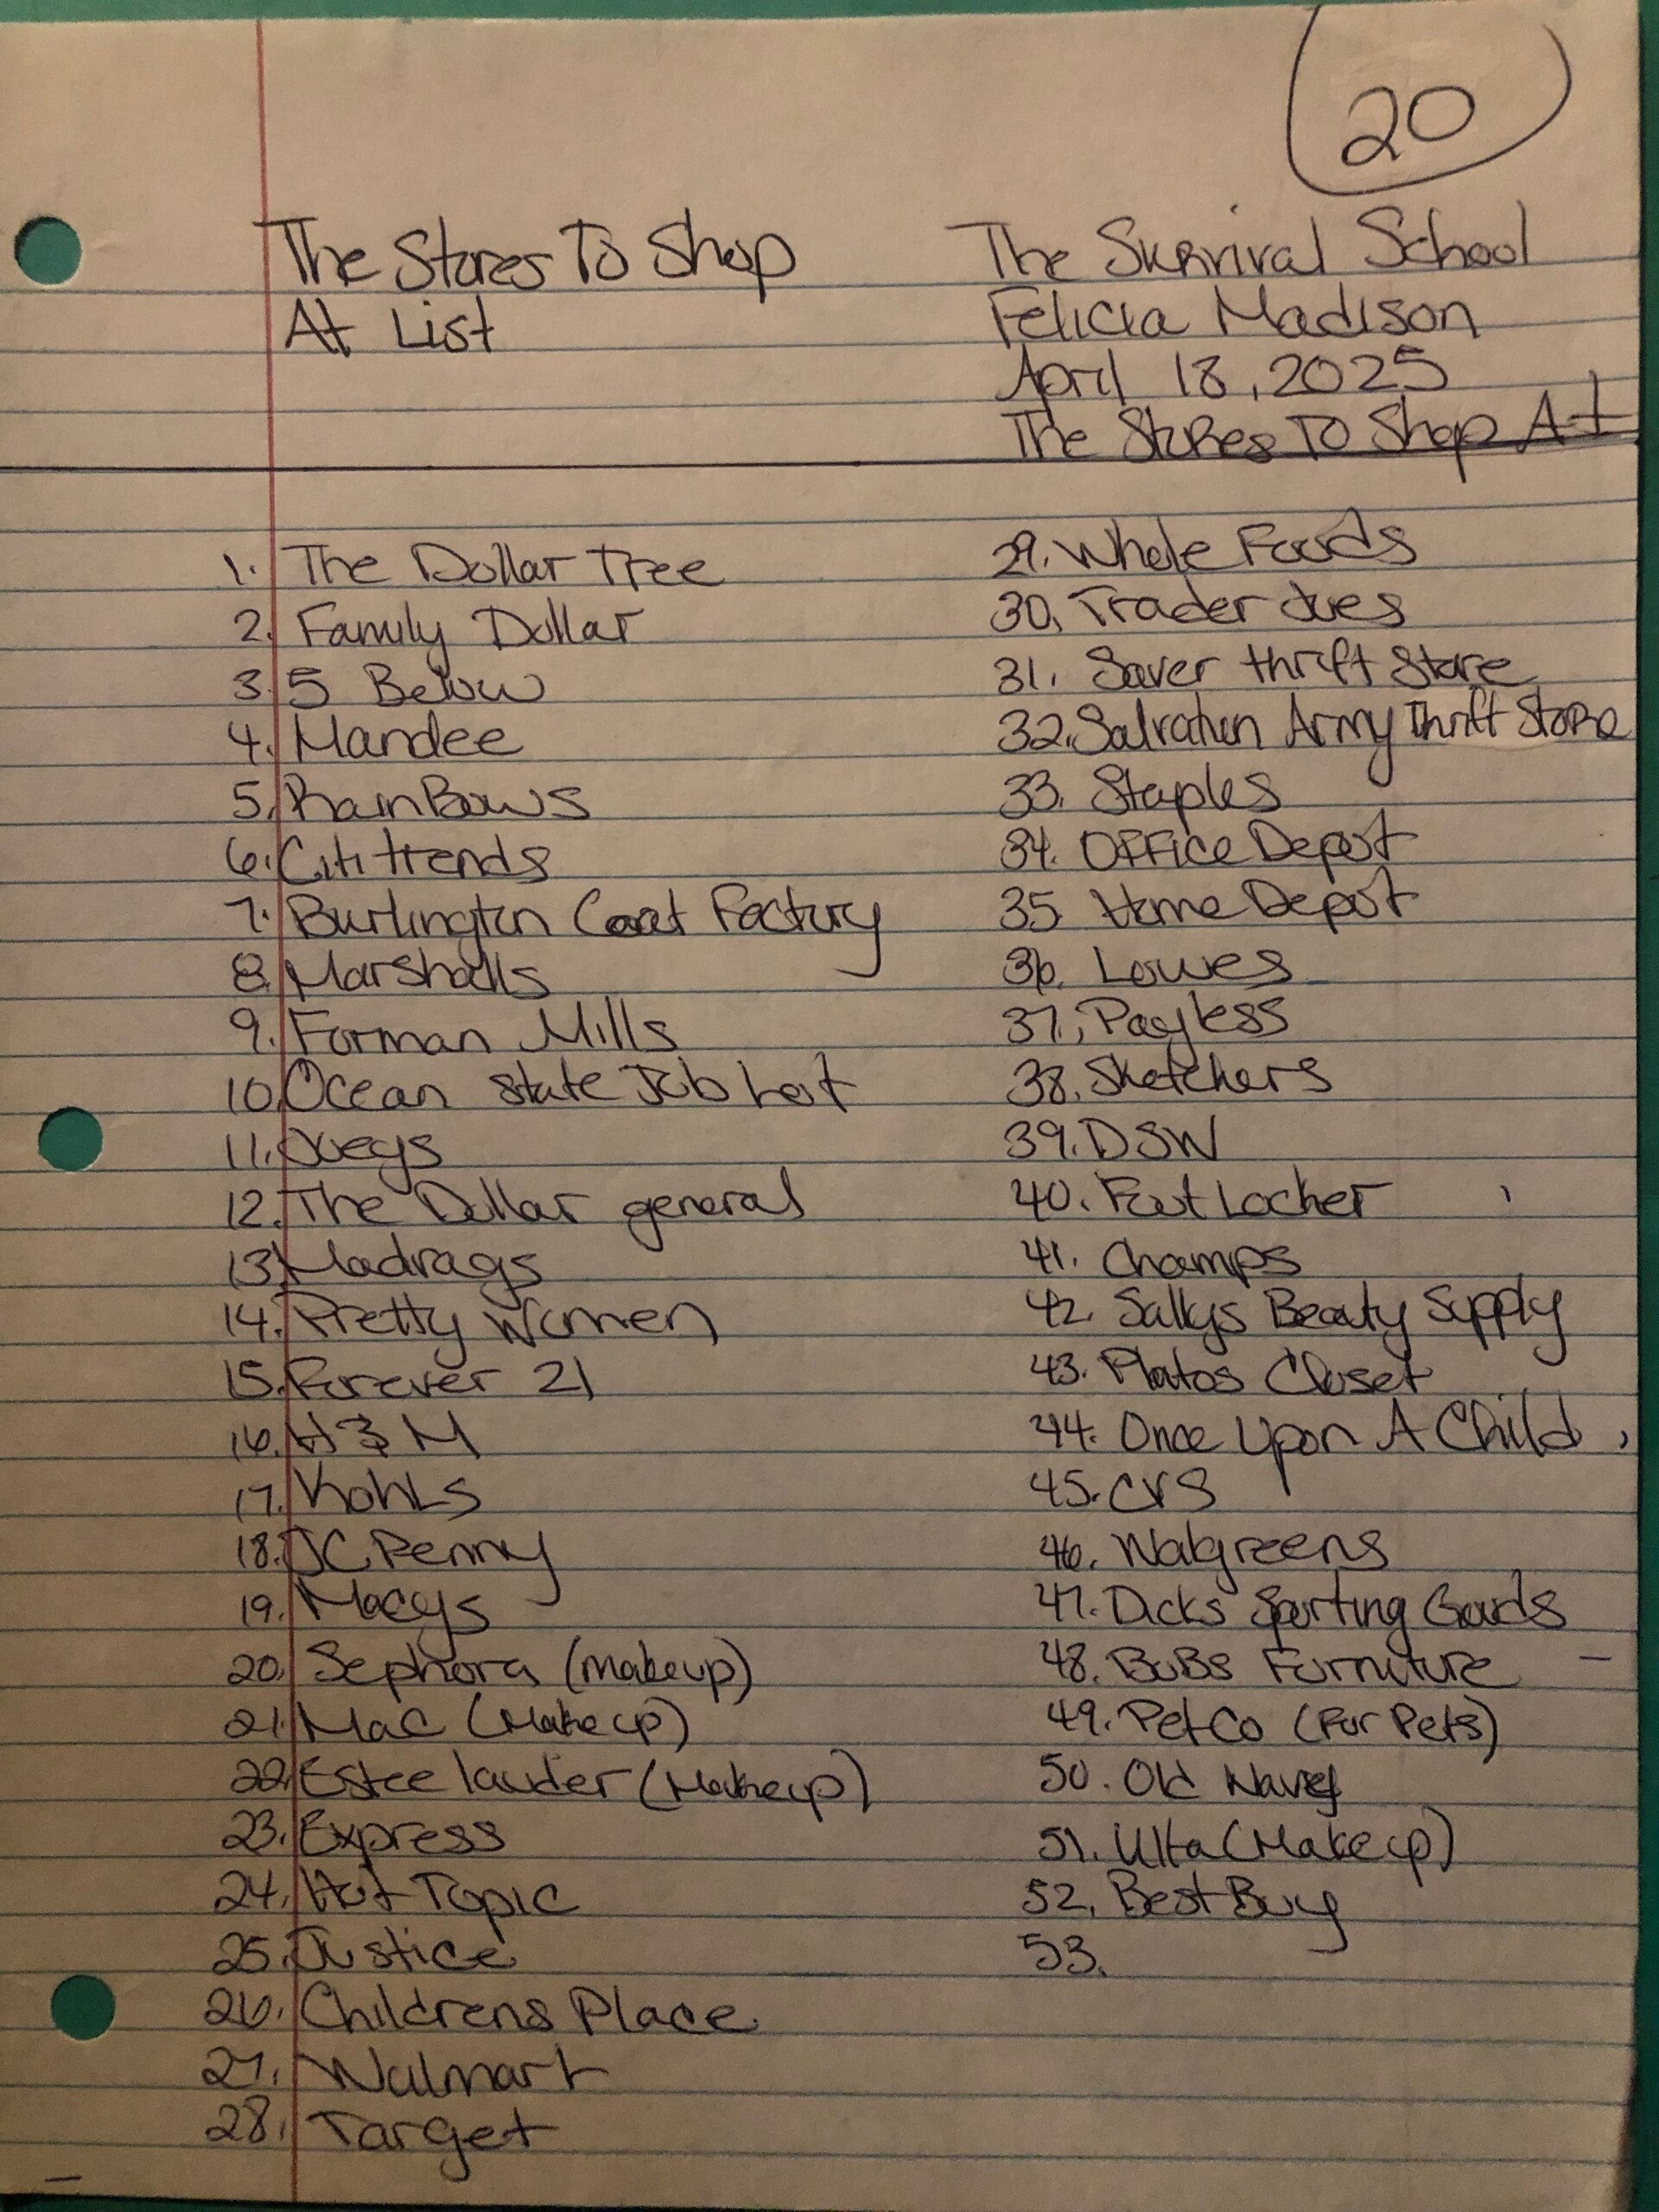 20
The Stores To Shop
At List
The Survival School
Felicia Madison
April 18, 2025
The Stores To Shop At
1. The Dollar Tree
2. Family Dollar
3. 5 Below
4. Mandee
5. RainBows
6. Cititrends
7. Burlington Coat Factory
8. Marshalls
9. Forman Mills
10. Ocean State Job Lot
11. Joeys
12. The Dollar general
13. Madrags
14. Pretty Women
15. Forever 21
16. H & M
17. Kohls
18. JC Penny
19. Macys
20. Sephora (makeup)
21. Mac (Makeup)
22. Estee lauder (Makeup)
23. Express
24. Hot Topic
25. Justice
26. Childrens Place
27. Walmart
28. Target
29. Whole Foods
30. Trader Joes
31. Saver thrift Store
32. Salvation Army Thrift Store
33. Staples
34. Office Depot
35 Home Depot
36. Lowes
37. Payless
38. Sketchers
39. DSW
40. Foot Locker
41. Champs
42. Sallys Beauty Supply
43. Platos Closet
44. Once Upon A Child
45. CVS
46. Walgreens
47. Dicks Sporting Goods
48. BoBs Furniture
49. PetCo (For Pets)
50. Old Navy
51. Ulta (Makeup)
52. Best Buy
53.